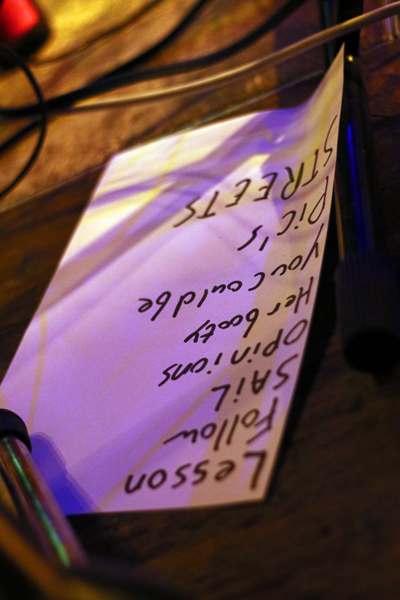 Lesson
Follow
SAiL
OPinions
Her booty
You could be
Pic's
STREETS